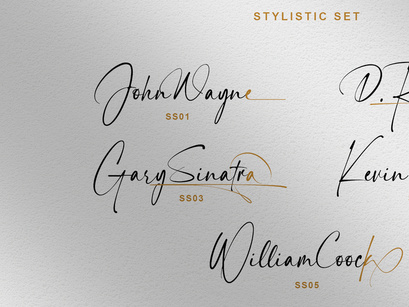 STYLISTIC SET
JohnWayne
D.R
SS01
GarySinatra
Kevin
SS03
WilliamCoock
SS05